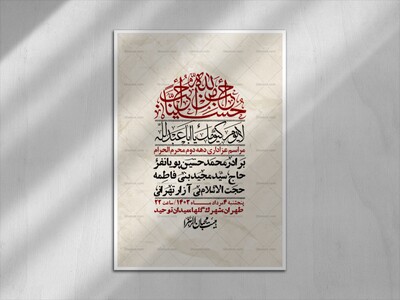 احب الله من احب حسینا
لا یوم کیومک یا اباعبدالله
مراسم عزاداری دهه دوم محرم الحرام
برادر محمدحسین پویانفر
حاج سید مجید بنی فاطمه
حجت الاسلام بی آزار تهرانی
پنجشنبه ۴ مرداد ماه ۱۴۰۳ / ساعت ۲۲
طهران شهرک گلها میدان توحید